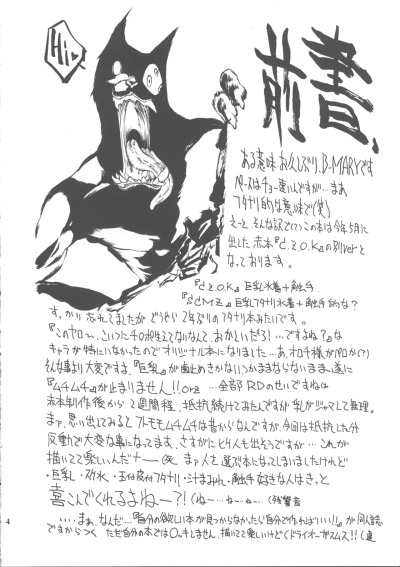 Hi♥
前書、
ある意味お久しぶり、B-MARYです
ペースはチョー速いんですが…まぁ
フタナリ的な意味で(笑)
えーと、そんな訳でこの本は今年5月に
出した赤本『d.z.O.K』の別verと
なっております。
『d.z.O.K』巨乳水着+触手
『ddMz』巨乳フタナリ水着+触手的な?
すっかり忘れてましたがどうやら2年ぶりのフタナリ本みたいです。
キャラが特にいなかったのでオリジナル本になりました…
そんな事より大変です、『巨乳』が歯止めきかないっつかまきならないまま、遂に
『ムチムチ』が止まりません!!orz …全部RDのせいですねは
赤本制作後から2週間程、抵抗続けてみたんですが乳がジャマして無理。
まァ、思い出してみるとフトモモムチムチは昔からなんですが今回は抵抗した分
反動で大変な事になってます、さすがにヒク人も出そうですが…これが
描いてて楽しいんだナー
まァ人を選ぶ本になってしまいましたけれど
・巨乳・スク水・玉付皮付フタナリ・汁まみれ・触手好きな人はきっと
喜こんでくれるよねー?!(ねー…ねー…ねー…(残響音
4
…まぁ、なんだ…『自分の欲しい本が見つからなかったら自分で作ればいい!!』が同人誌
ですからっつく ただ自分の本では○ッキしません、描いてて楽しいけど(ドライオーガズムス!!(違